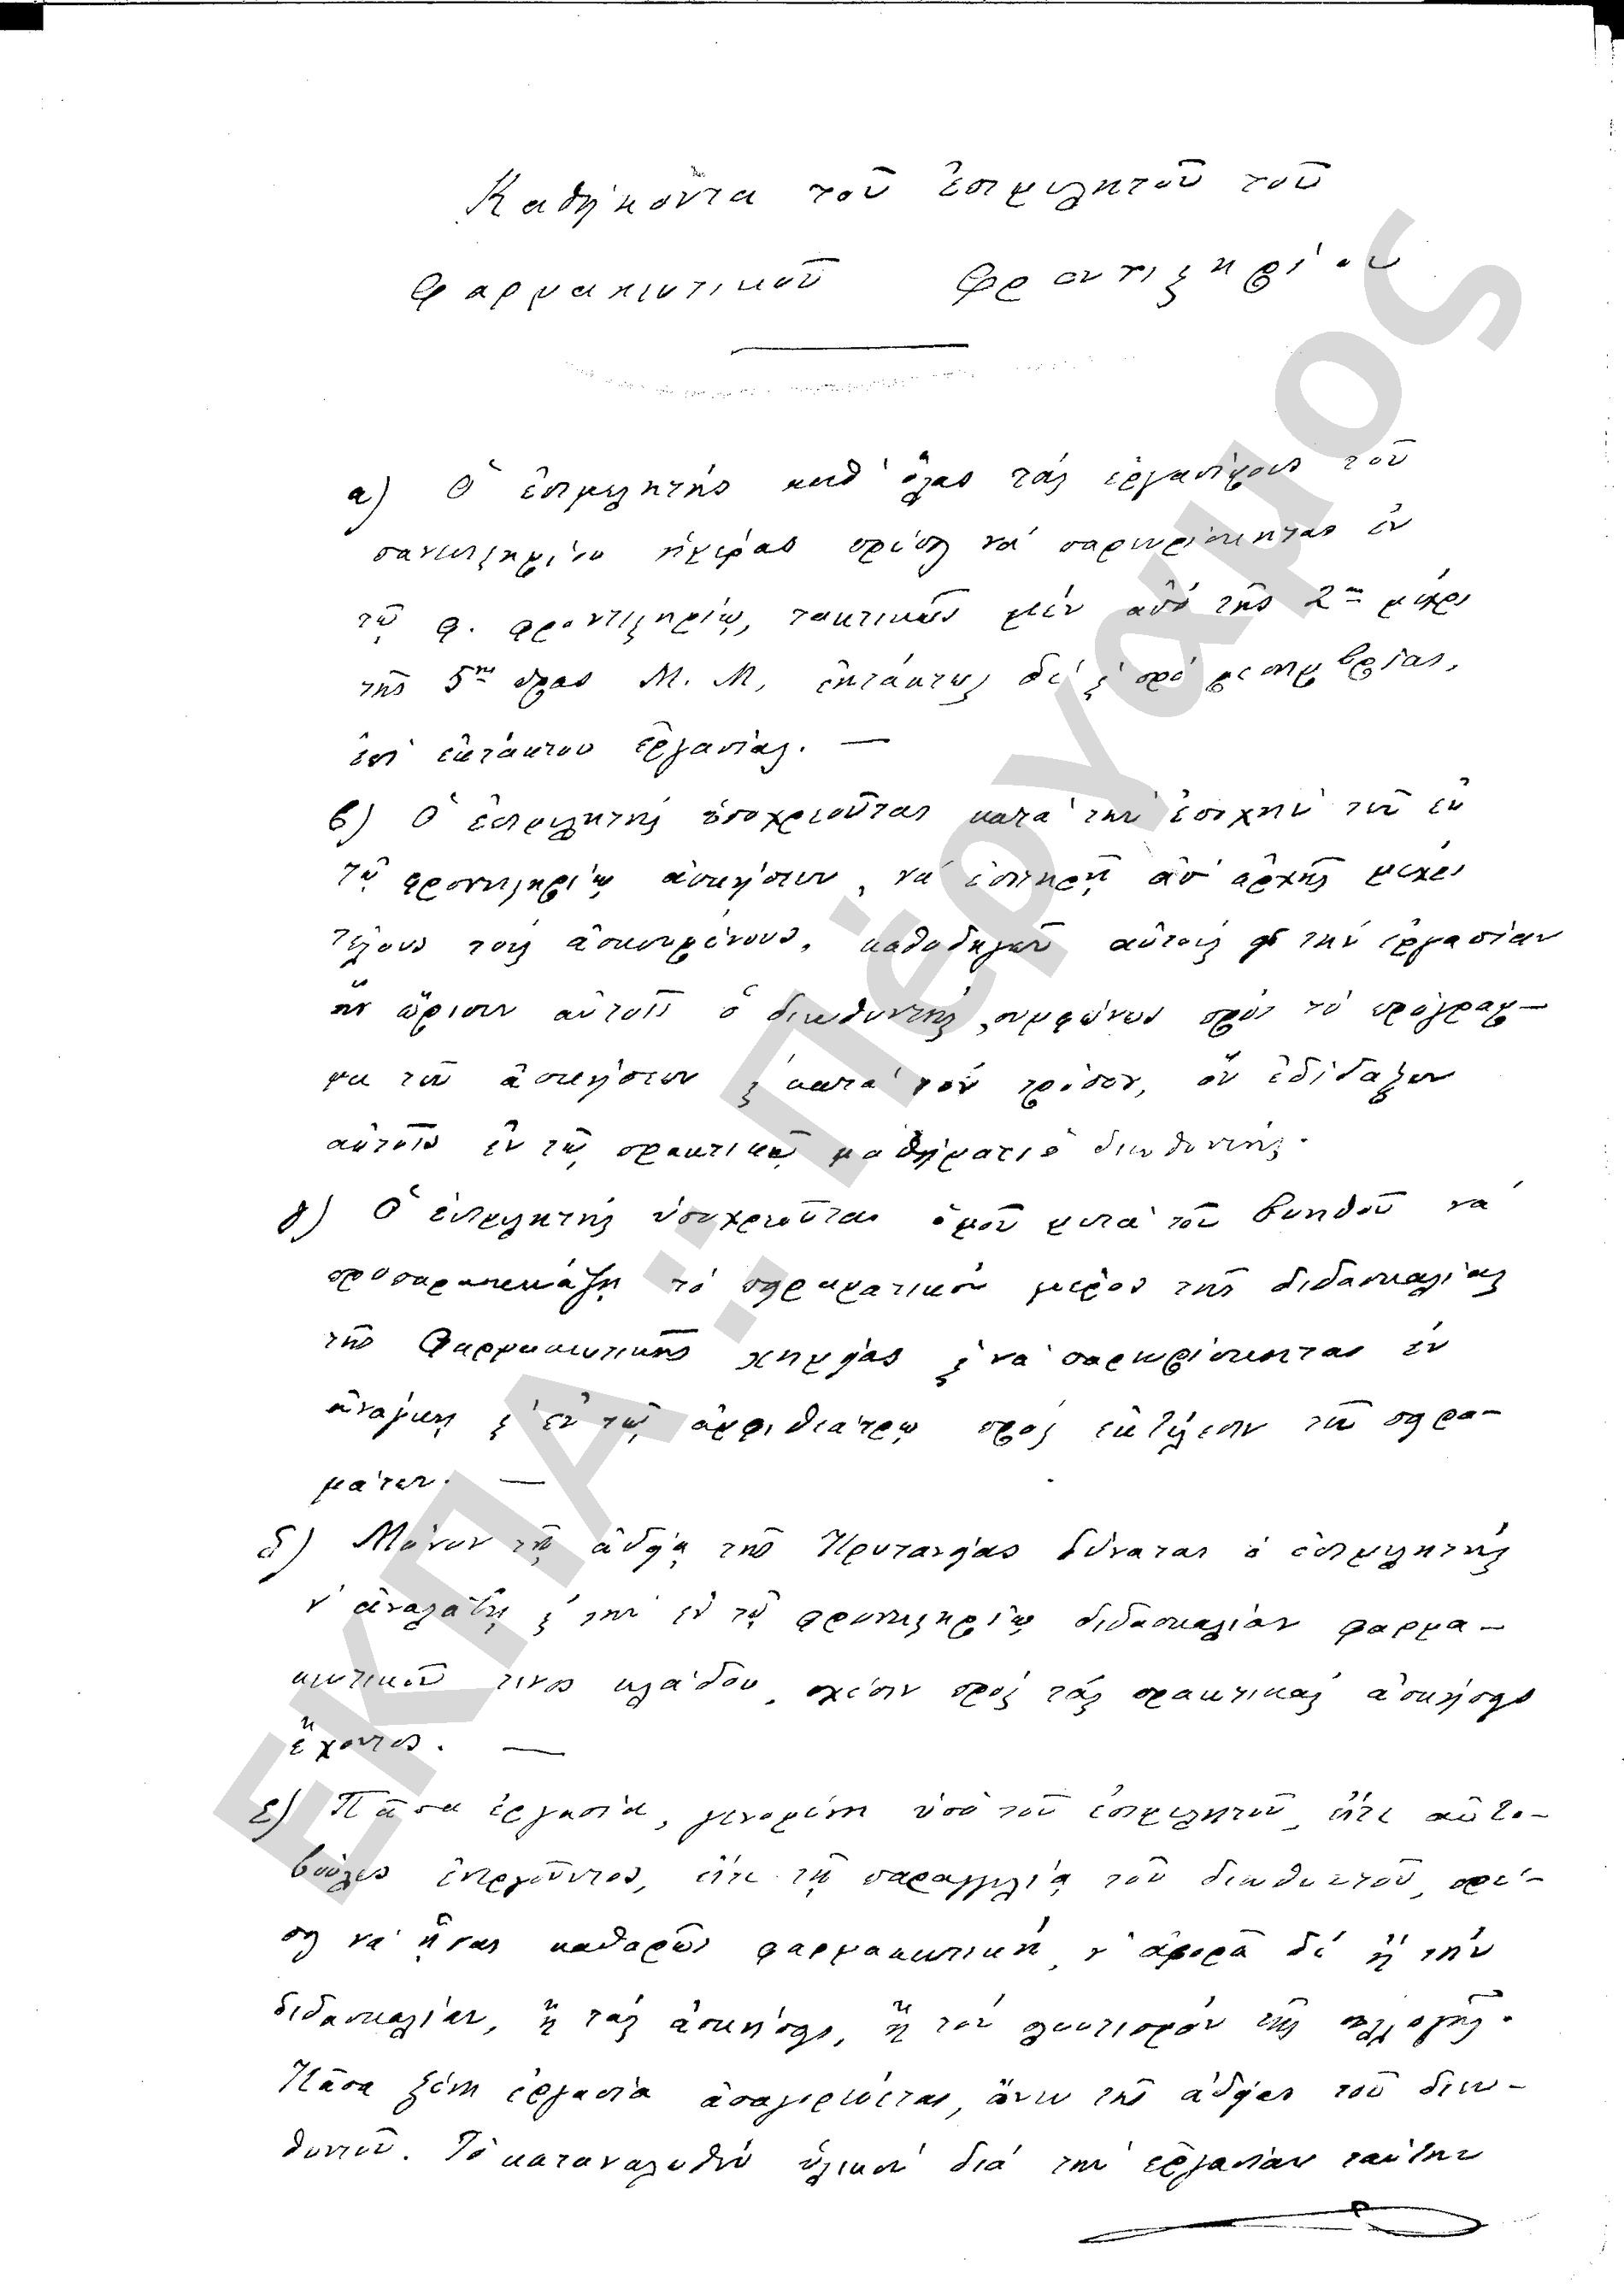 Καθήκοντα τοῦ ἐπιμελητοῦ τοῦ
Φαρμακευτικοῦ Φροντιστηρίου
α) Ὁ ἐπιμελητής καθ' ὅλας τάς ἐργασίμους τοῦ
πανεπιστημίου ἡμέρας πρέπει νά παρευρίσκηται ἐν
τῷ φ. φροντιστηρίῳ, τακτικῶς μέν ἀπό τῆς 2ας μέχρι
τῆς 5ης ὥρας Μ. Μ, ἐκτάκτως δέ ϛ πρό μεσημβρίας,
ἐπί ἐκτάκτου ἐργασίας. —
β) Ὁ ἐπιμελητής ὑποχρεοῦται κατά τήν ἐποχήν τῶν ἐν
τῷ φροντιστηρίῳ ἀσκήσεων, νά ἐπιτηρῇ ἀπ' ἀρχῆς μέχρι
τέλους τούς ἀσκουμένους, καθοδηγῶν αὐτούς εἰς τήν ἐργασίαν
ἥν ὥρισεν αὐτοῖς ὁ διευθυντής, συμφώνως πρός τό πρόγραμ-
μα τῶν ἀσκήσεων ϛ κατά τόν τρόπον, ὅν ἐδίδαξεν
αὐτοῖς ἐν τῷ πρακτικῷ μαθήματι ὁ διευθυντής.
γ) Ὁ ἐπιμελητής ὑποχρεοῦται ὁμοῦ μετά τοῦ βοηθοῦ νά
προπαρασκευάζῃ τό πειραματικόν μέρος τῆς διδασκαλίας
τῆς Φαρμακευτικῆς χημείας ϛ νά παρευρίσκηται ἐν
ἀνάγκῃ ϛ ἐν τῷ ἀμφιθεάτρῳ πρός ἐκτέλεσιν τῶν πειρα-
μάτων. —
δ) Μόνον τῇ ἀδείᾳ τῆς Πρυτανείας δύναται ὁ ἐπιμελητής
ν' ἀναλάβῃ ϛ τήν ἐν τῷ φροντιστηρίῳ διδασκαλίαν φαρμα-
κευτικοῦ τινος κλάδου, σχέσιν πρός τάς πρακτικάς ἀσκήσεις
ἔχοντος. —
ε) Πᾶσα ἐργασία, γενομένη ὑπό τοῦ ἐπιμελητοῦ, εἴτε αὐτο-
βούλως ἐνεργοῦντος, εἴτε τῇ παραγγελίᾳ τοῦ διευθυντοῦ, πρέ-
πει νά ἦναι καθαρῶς φαρμακευτική, ν' ἀφορᾷ δέ ἤ τήν
διδασκαλίαν, ἤ τάς ἀσκήσεις, ἤ τόν πλουτισμόν τῆς συλλογῆς.
Πᾶσα ξένη ἐργασία ἀπαγορεύεται, ἄνευ τῆς ἀδείας τοῦ διευ-
θυντοῦ. Τό καταναλωθέν ὑλικόν διά τήν ἐργασίαν ταύτην
ΕΚΠΑ: Πέργαμος